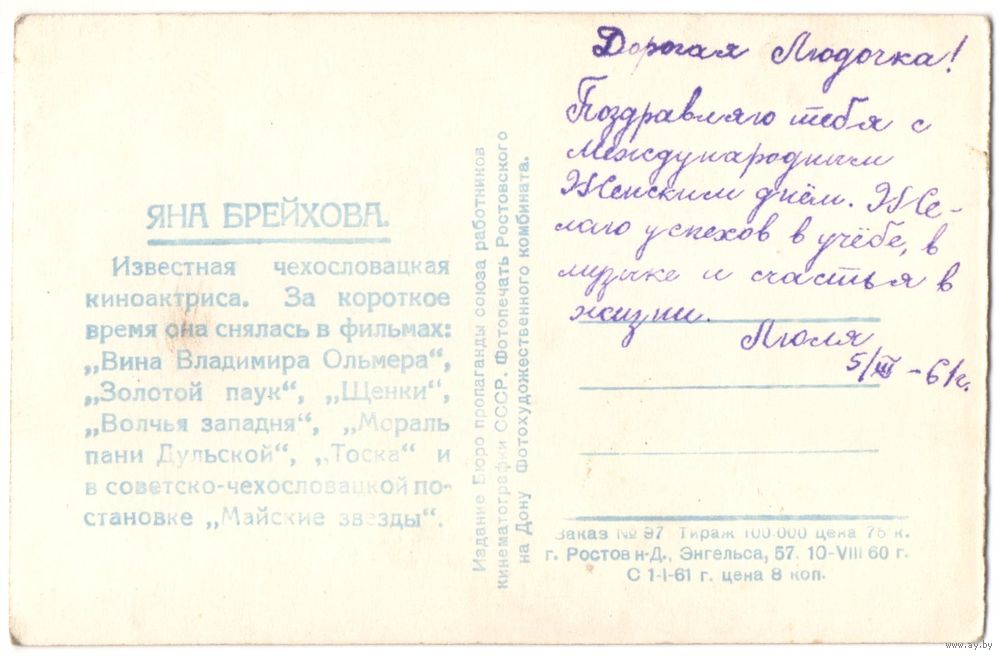 ЯНА БРЕЙХОВА.
Известная чехословацкая
киноактриса. За короткое
время она снялась в фильмах:
„Вина Владимира Ольмера“,
„Золотой паук“, „Щенки“,
„Волчья западня“, „Мораль
пани Дульской“, „Тоска“ и
в советско-чехословацкой по-
становке „Майские звезды“.
Издание Бюро пропаганды союза работников
кинематографии СССР. Фотопечать Ростовского
на Дону Фотохудожественного комбината.
Дорогая Людочка!
Поздравляю тебя с
Международным
Женским днём. Же-
лаю успехов в учёбе, в
музыке и счастья в
жизни.
Люля
5/III – 61г.
Заказ № 97 Тираж 100.000 цена 75 к.
г. Ростов н-Д., Энгельса, 57. 10-VIII 60 г.
С 1-I-61 г. цена 8 коп.
www.ay.by